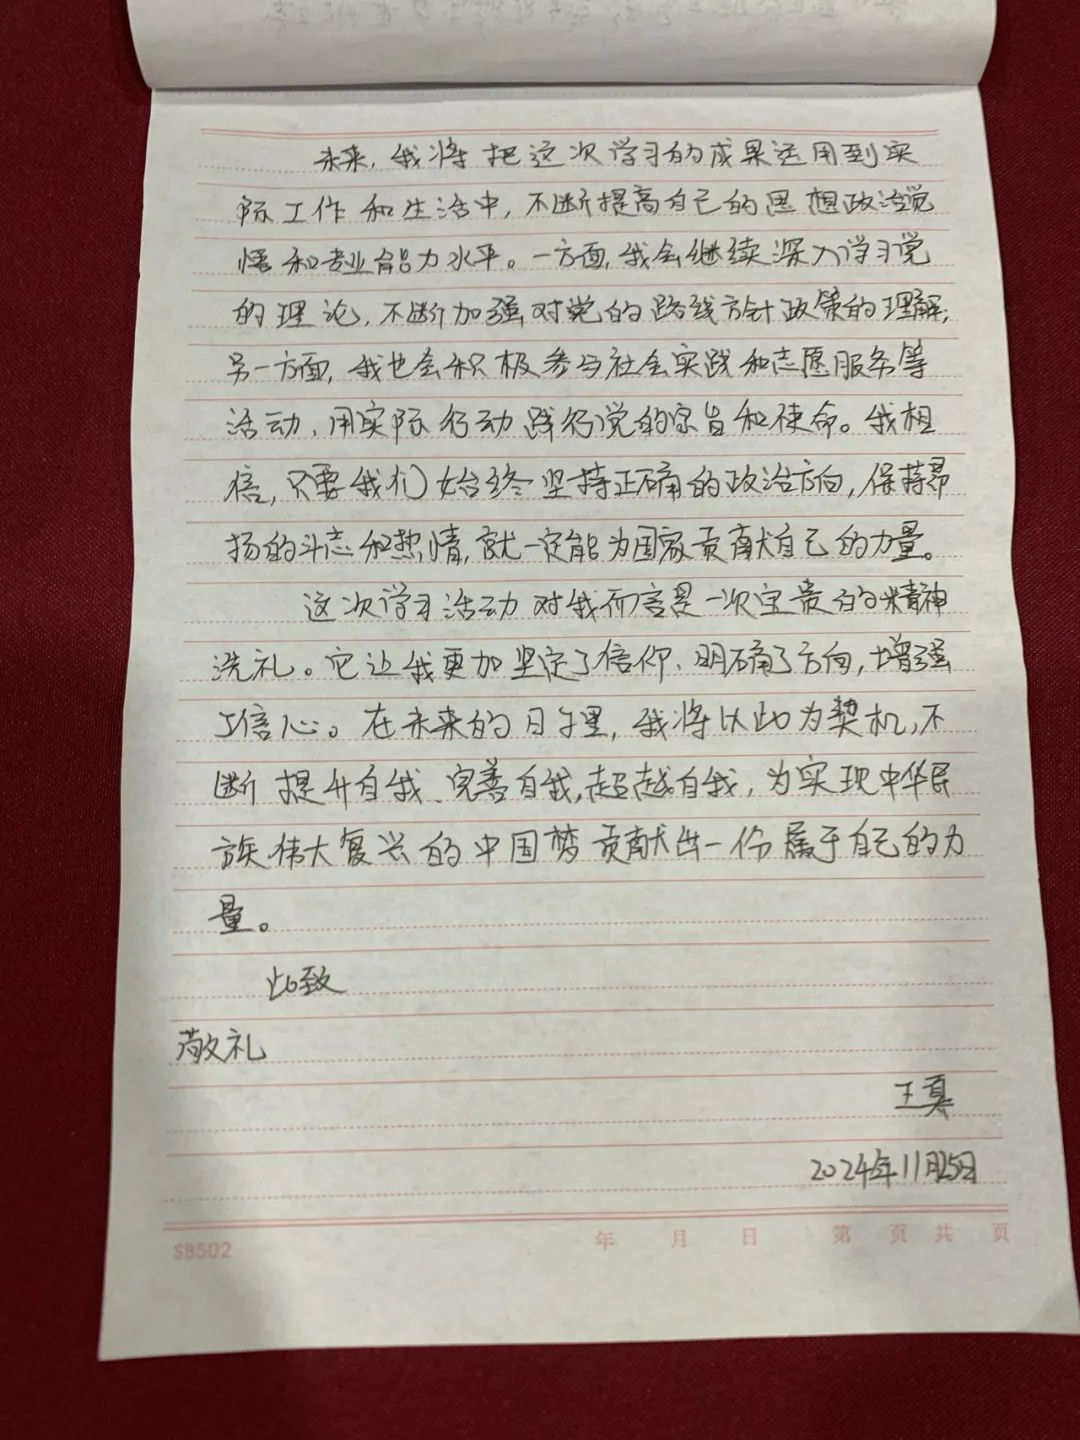 未来，我将把这次学习的成果运用到实
际工作和生活中，不断提高自己的思想政治觉
悟和专业能力水平。一方面，我会继续深入学习党
的理论，不断加强对党的路线方针政策的理解；
另一方面，我也会积极参与社会实践和志愿服务等
活动，用实际行动践行党的宗旨和使命。我相
信，只要我们始终坚持正确的政治方向，保持昂
扬的斗志和热情，就一定能为国家贡献自己的力量。
这次学习活动对我而言是一次宝贵的精神
洗礼。它让我更加坚定了信仰、明确了方向，增强
了信心。在未来的日子里，我将以此为契机，不
断提升自我、完善自我，超越自我，为实现中华民
族伟大复兴的中国梦贡献出一份属于自己的力
量。
此致
敬礼
王真
2024年11月25日
SB502 年 月 日 第 页 共 页